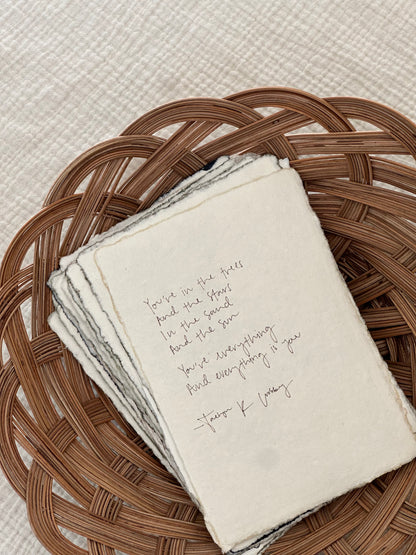 You're in the trees
And the stars
In the sand
And the sun
You're everything
And everything is you
K